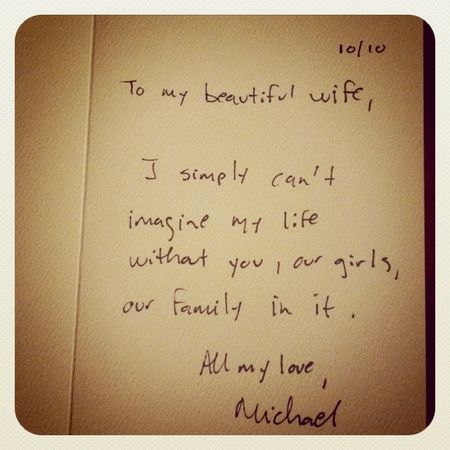 10/10
To my beautiful wife,
I simply can't
imagine my life
without you, our girls,
our family in it.
All my love,
Michael